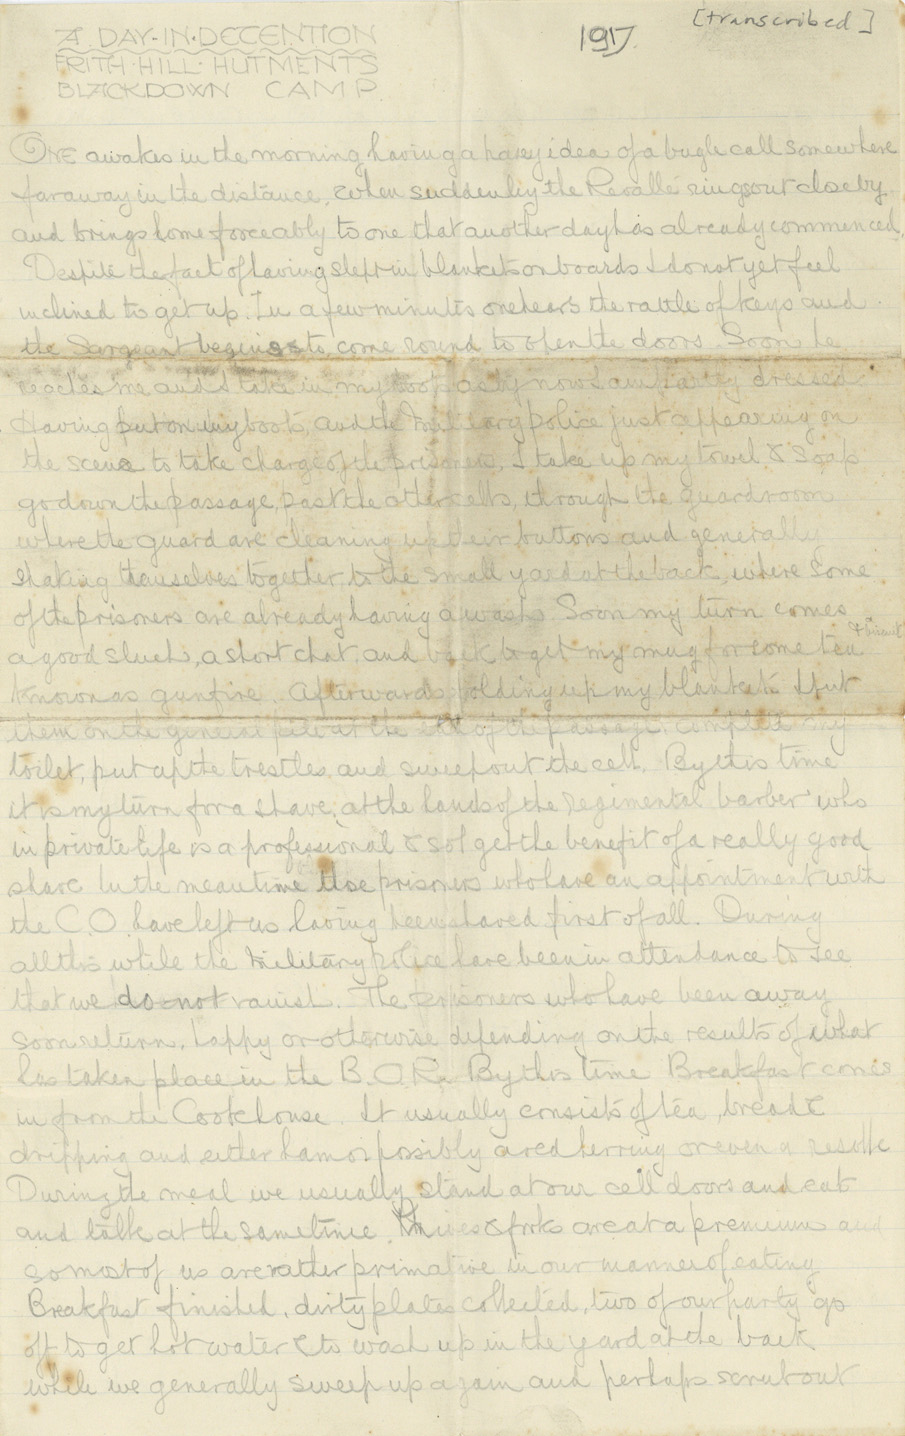 [transcribed]
1917.
A DAY·IN·DETENTION
FRITH·HILL·HUTMENTS
BLACKDOWN CAMP
ONE awakes in the morning having a hazy idea of a bugle call somewhere
far away in the distance, when suddenly the Revallé rings out close by
and brings home forceably to one that another day has already commenced.
Despite the fact of having slept in blankets on boards I do not yet feel
inclined to get up. In a few minutes one hears the rattle of keys and
the Sargeant begins to come round to open the doors. Soon he
reaches me and I take in my boots as by now I am fairly dressed
Having put on my boots, and the Military police just appearing on
the scene to take charge of the prisoners, I take up my towel & soap
go down the passage, past the other cells, through the guardroom
where the guard are cleaning up their buttons and generally
shaking themselves together, to the small yard at the back, where some
of the prisoners are already having a wash. Soon my turn comes
a good sluch, a short chat, and back to get my mug for some tea & biscuit
known as gunfire. Afterwards folding up my blankets I put
them on the general pile at the end of the passage, complete my
toilet, put up the trestles, and sweep out the cell. By this time
it is my turn for a shave, at the hands of the regimental barber who
in private life is a professional & so I get the benefit of a really good
shave. In the meantime those prisoners who have an appointment with
the C.O. have left us having been shaved first of all. During
all this while the Military police have been in attendance to see
that we do not vanish. The prisoners who have been away
soon return, happy or otherwise depending on the results of what
has taken place in the B.O.R. By this time Breakfast comes
in from the Cookhouse. It usually consists of tea, bread &
dripping and either ham or possibly a red herring or even a
During the meal we usually stand at our cell doors and eat
and talk at the sametime. Knives & forks are at a premium and
so most of us are rather primative in our manner of eating
Breakfast finished, dirty plates collected, two of our party go
off to get hot water & to wash up in the yard at the back
while we generally sweep up again and perhaps scrub out